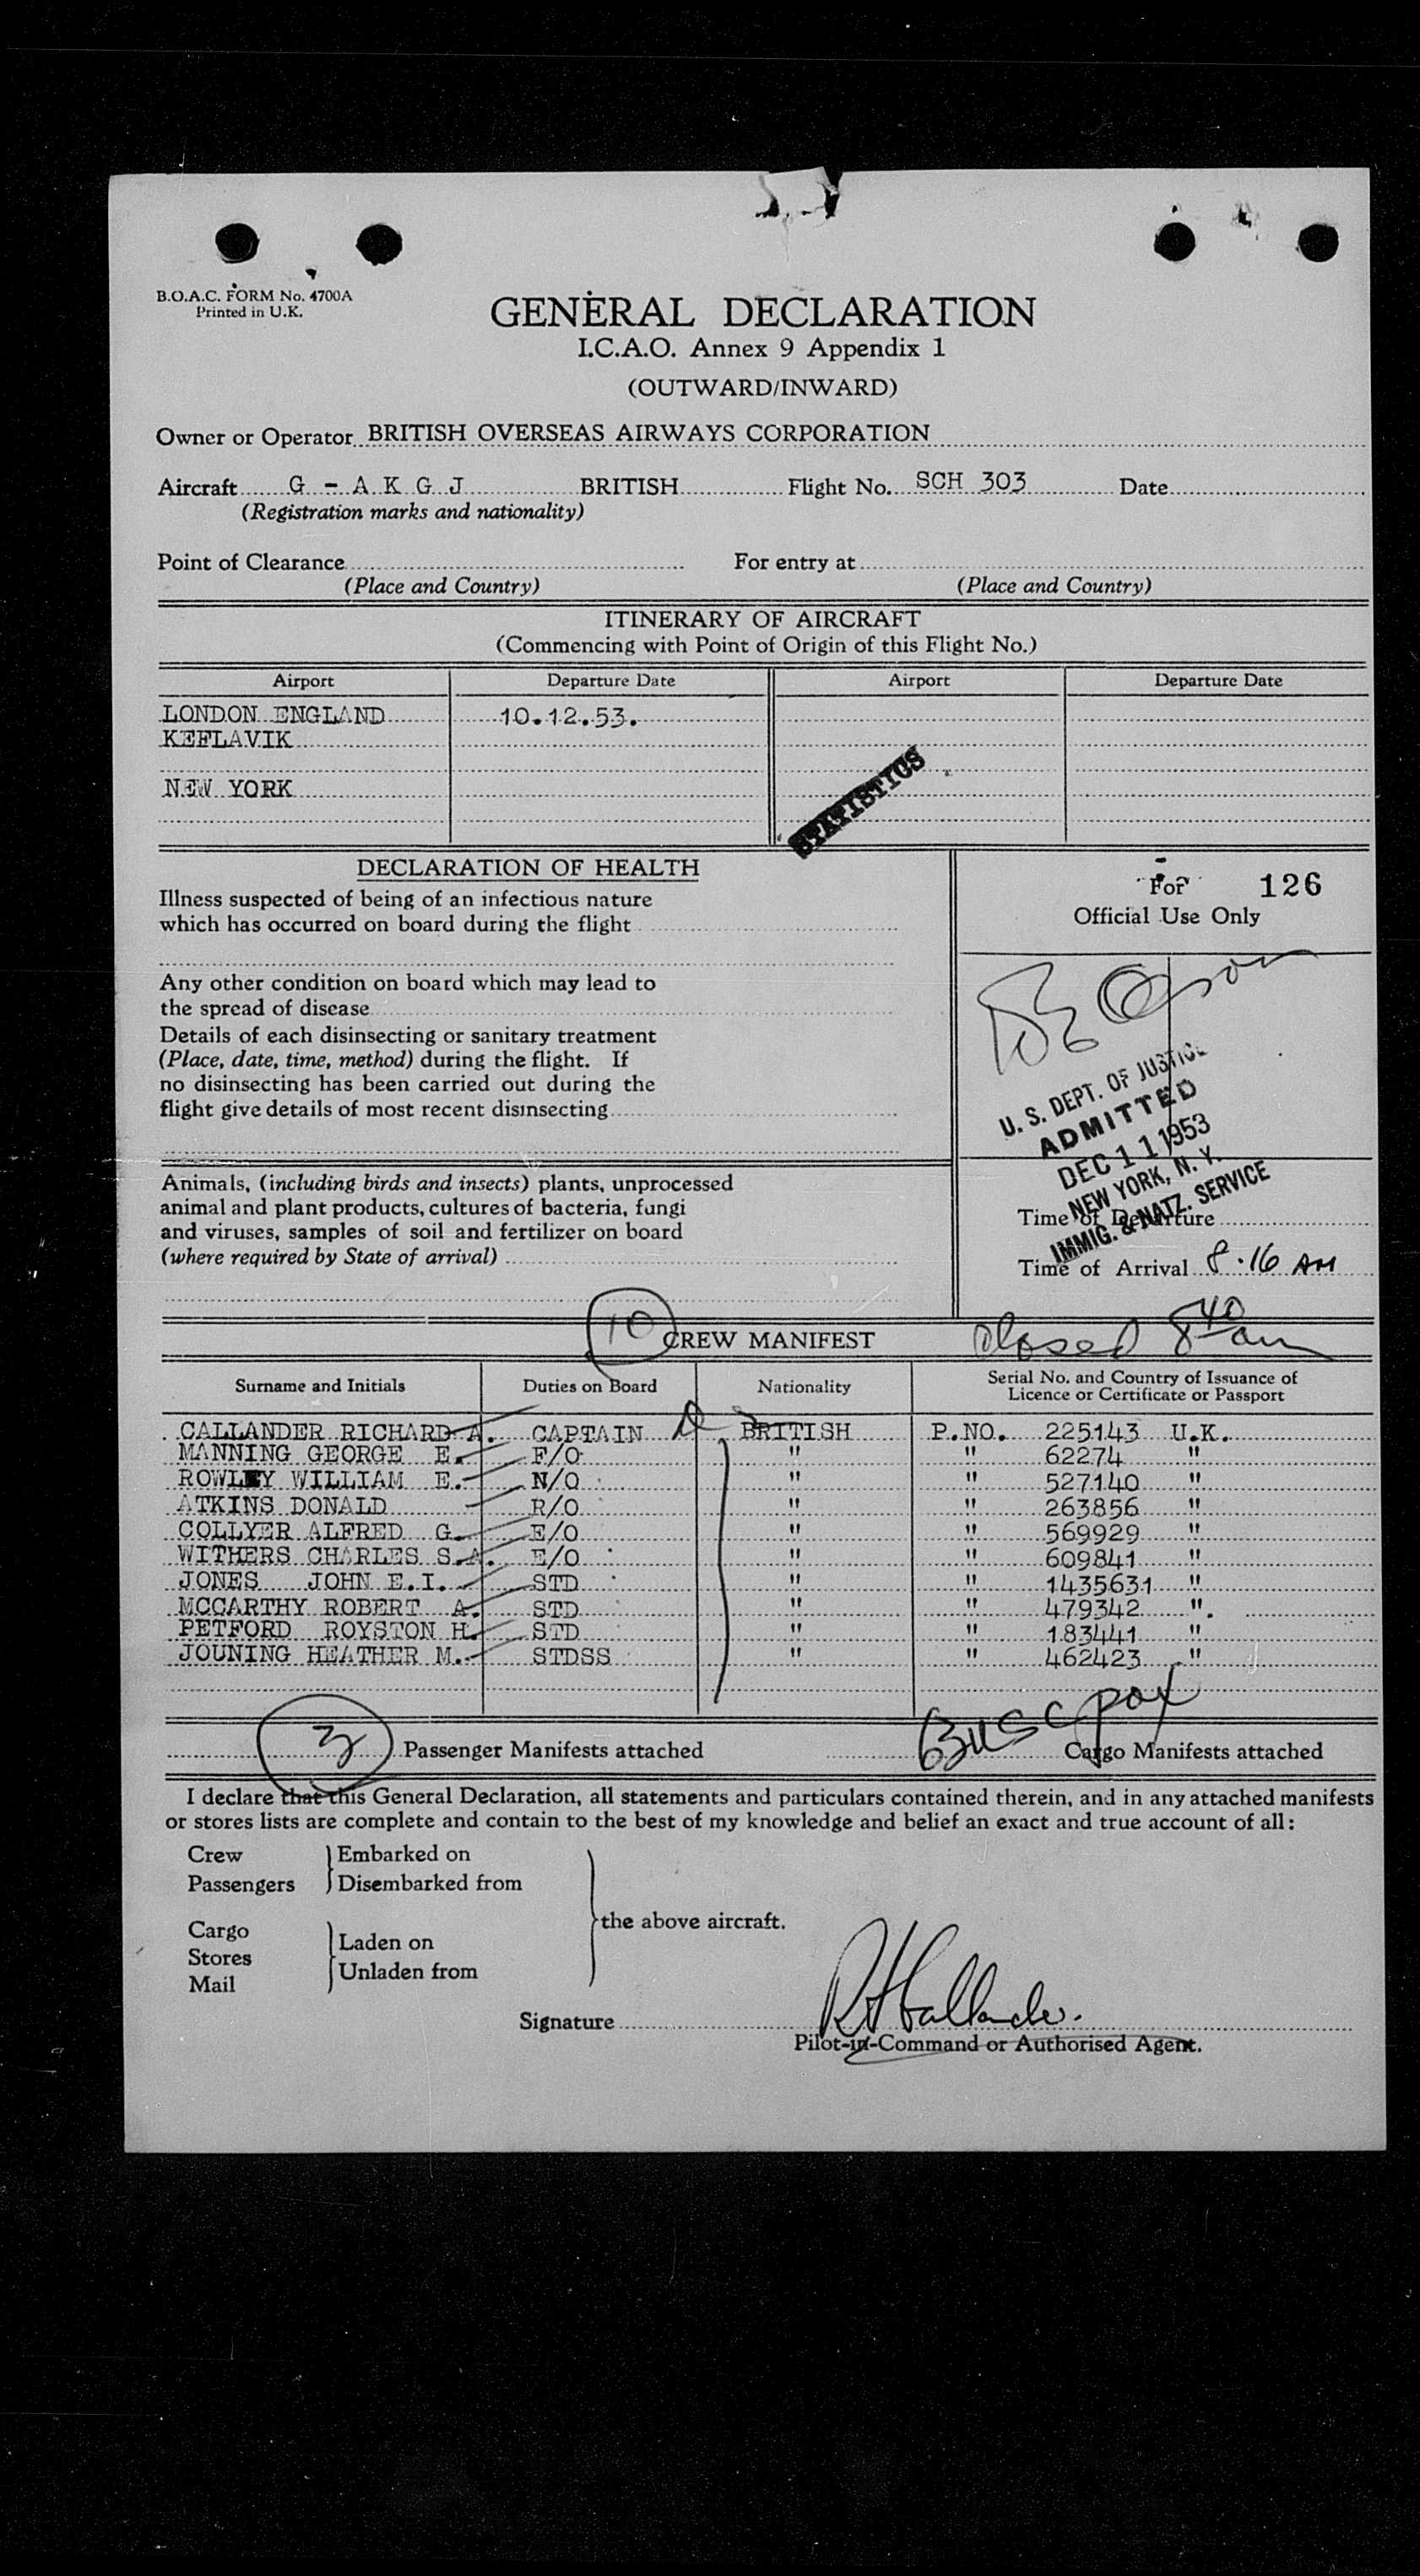 B.O.A.C. FORM No. 4700A
Printed in U.K.
GENERAL DECLARATION
I.C.A.O. Annex 9 Appendix 1
(OUTWARD/INWARD)
Owner or Operator BRITISH OVERSEAS AIRWAYS CORPORATION
Aircraft G - A K G J BRITISH Flight No. SCH 303 Date
(Registration marks and nationality)
Point of Clearance For entry at
(Place and Country) (Place and Country)
ITINERARY OF AIRCRAFT
(Commencing with Point of Origin of this Flight No.)
Airport Departure Date Airport Departure Date
LONDON ENGLAND 10.12.53.
KEFLAVIK
NEW YORK
STATISTICS
DECLARATION OF HEALTH
Illness suspected of being of an infectious nature
which has occurred on board during the flight
Any other condition on board which may lead to
the spread of disease
Details of each disinsecting or sanitary treatment
(Place, date, time, method) during the flight. If
no disinsecting has been carried out during the
flight give details of most recent disinsecting
Animals, (including birds and insects) plants, unprocessed
animal and plant products, cultures of bacteria, fungi
and viruses, samples of soil and fertilizer on board
(where required by State of arrival)
For 126
Official Use Only
U. S. DEPT. OF JUSTICE
ADMITTED
DEC 11 1953
NEW YORK, N. Y.
IMMIG. & NATZ. SERVICE
Time of Departure
Time of Arrival 8.16 AM
10 CREW MANIFEST closed 8 40 am
Surname and Initials Duties on Board Nationality Serial No. and Country of Issuance of
Licence or Certificate or Passport
CALLANDER RICHARD A. CAPTAIN BRITISH P.NO. 225143 U.K.
MANNING GEORGE E. F/O " " 62274 "
ROWLEY WILLIAM E. N/O " " 527140 "
ATKINS DONALD R/O " " 263856 "
COLLYER ALFRED G. E/O " " 569929 "
WITHERS CHARLES S.A. E/O " " 609841 "
JONES JOHN E.I. STD " " 1435631 "
MCCARTHY ROBERT A. STD " " 479342 ".
PETFORD ROYSTON H. STD " " 183441 "
JOUNING HEATHER M. STDSS " " 462423 "
3 Passenger Manifests attached Cargo Manifests attached
I declare that this General Declaration, all statements and particulars contained therein, and in any attached manifests
or stores lists are complete and contain to the best of my knowledge and belief an exact and true account of all:
Crew Embarked on
Passengers Disembarked from
the above aircraft.
Cargo Laden on
Stores Unladen from
Mail
Signature R A Callander.
Pilot-in-Command or Authorised Agent.